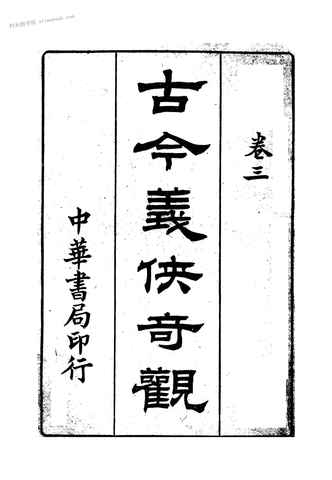 卷三
古今義俠奇觀
中華書局印行